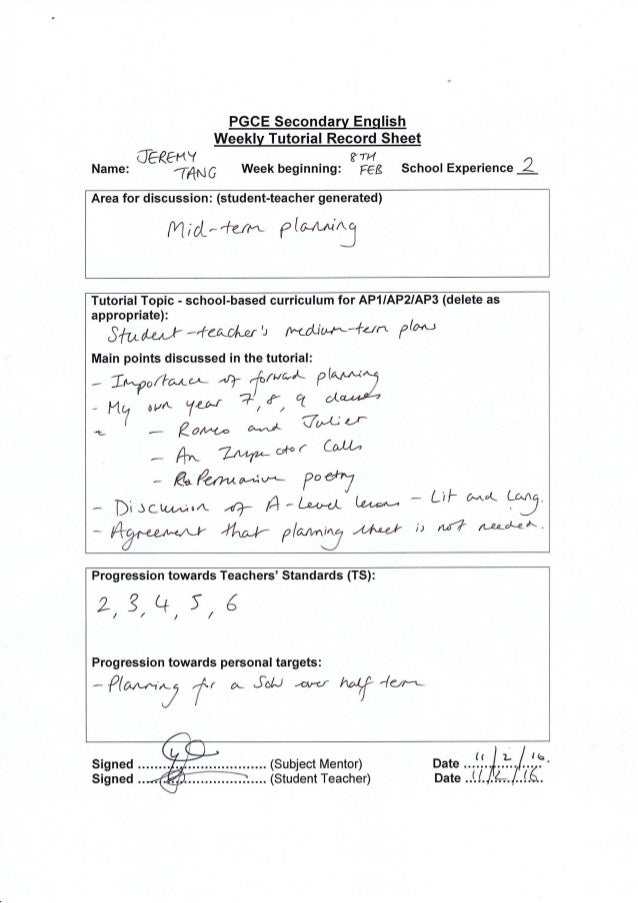 PGCE Secondary English
Weekly Tutorial Record Sheet
Name: JEREMY TANG Week beginning: 8TH FEB School Experience 2
Area for discussion: (student-teacher generated)
Mid-term planning
Tutorial Topic - school-based curriculum for AP1/AP2/AP3 (delete as
appropriate):
Student-teacher's medium-term plans
Main points discussed in the tutorial:
- Importance of forward planning
- My own year 7, 8, 9 classes
- Romeo and Juliet
- An Inspector Calls
- Persuasive poetry
- Discussion of A-Level lessons - Lit and Lang.
- Agreement that planning sheet is not needed.
Progression towards Teachers' Standards (TS):
2, 3, 4, 5, 6
Progression towards personal targets:
- Planning for a SoW over half term
Signed ................................ (Subject Mentor) Date 11/2/16.
Signed ................................ (Student Teacher) Date 11/2/16.